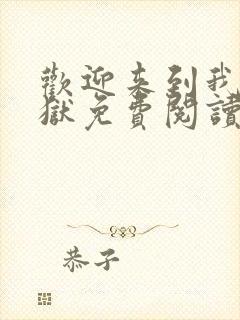 歡迎来到我
獄免費閱讀
恭子